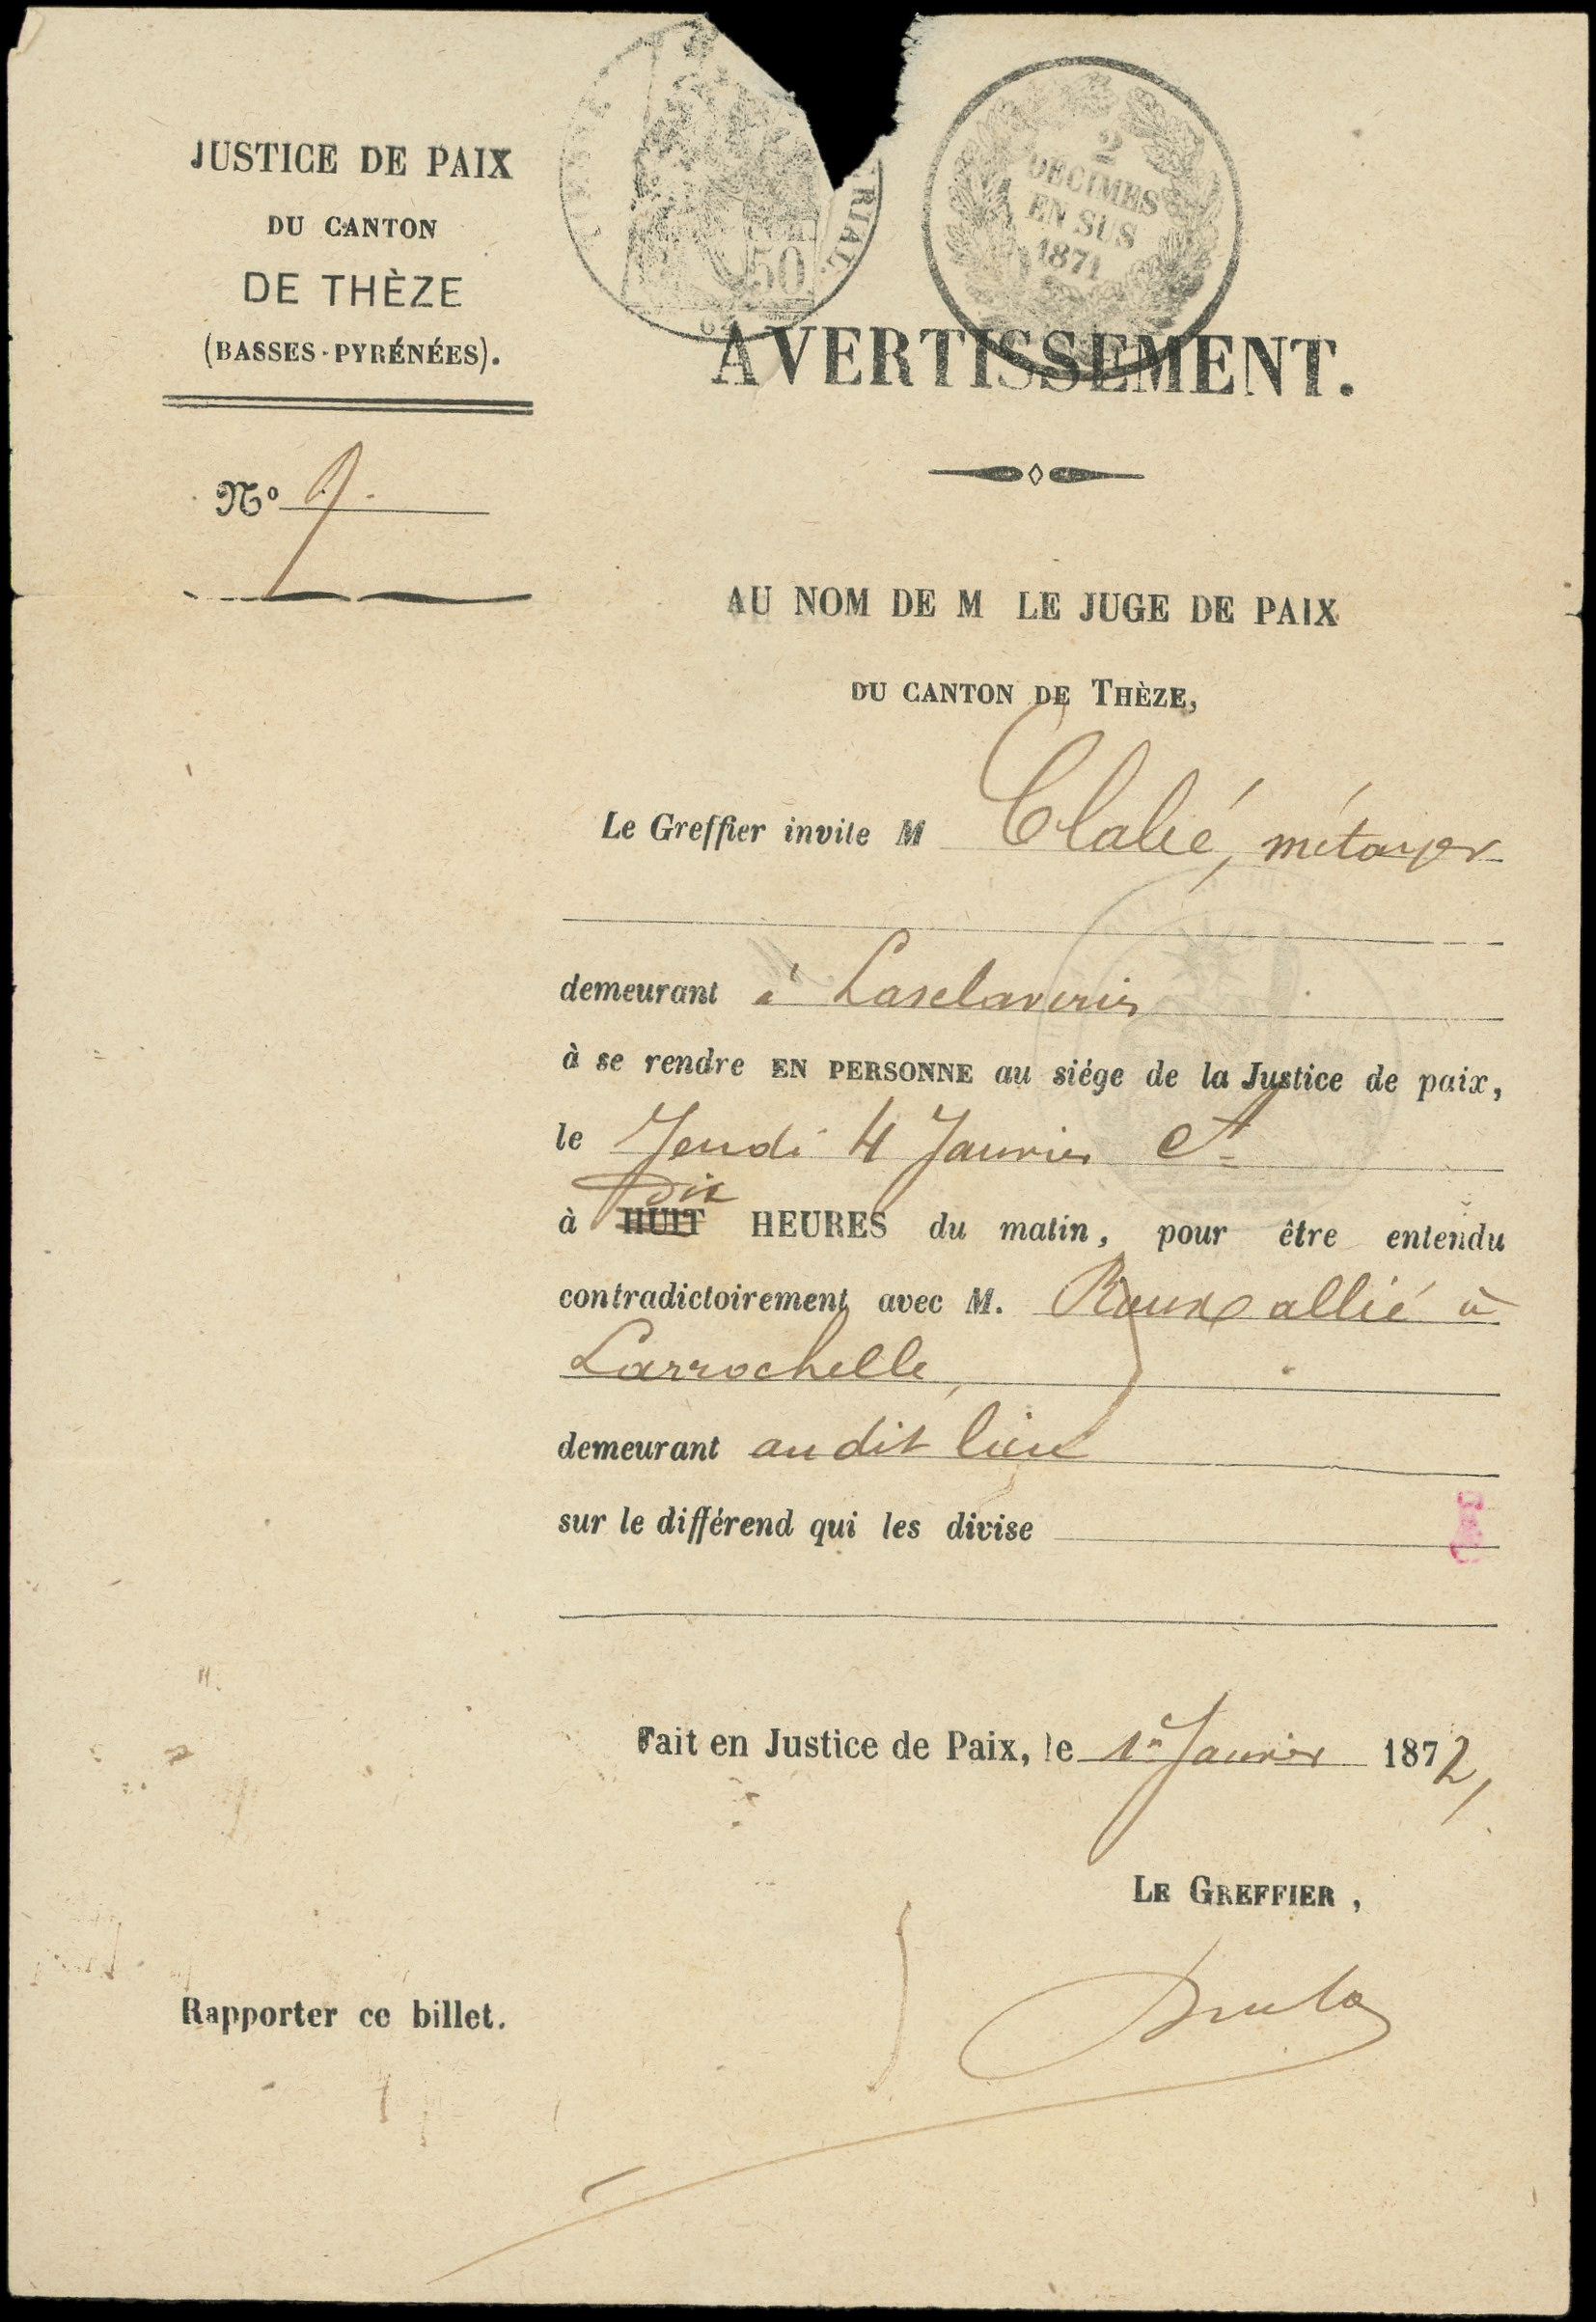 JUSTICE DE PAIX
DU CANTON
DE THÈZE
(BASSES-PYRÉNÉES).
Nº 9.
TIMBRE
RIAL.
50
2
DECIMES
EN SUS
1871
AVERTISSEMENT.
AU NOM DE M LE JUGE DE PAIX
DU CANTON DE THÈZE,
Le Greffier invite M Clalié, métayer
demeurant à Lasclaveries
à se rendre EN PERSONNE au siége de la Justice de paix,
le Jeudi 4 Janvier Ct
Dix
à HUIT HEURES du matin, pour être entendu
contradictoirement avec M. Roux allié à
Larrochelle,
demeurant au dit lieu
sur le différend qui les divise
Fait en Justice de Paix, le 1er Janvier 1872,
LE GREFFIER,
Rapporter ce billet.